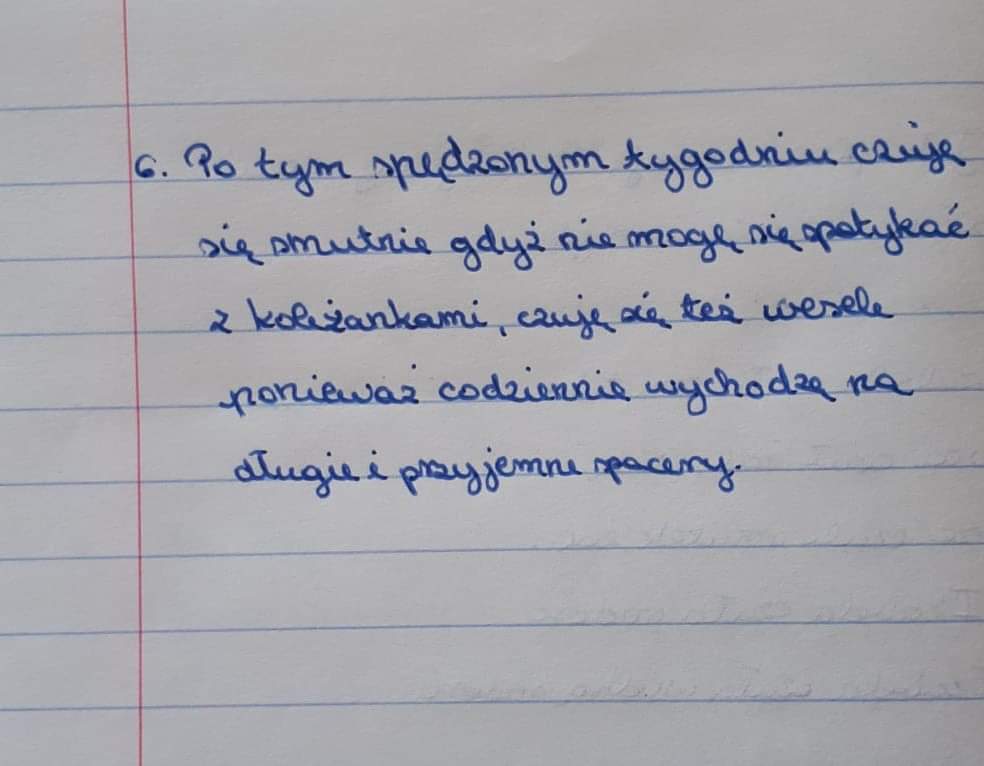 6. Po tym spędzonym tygodniu czuję
się smutnie gdyż nie mogę się spotykać
z koleżankami, czuję się też wesele
ponieważ codziennie wychodzę na
długie i przyjemne spacery.